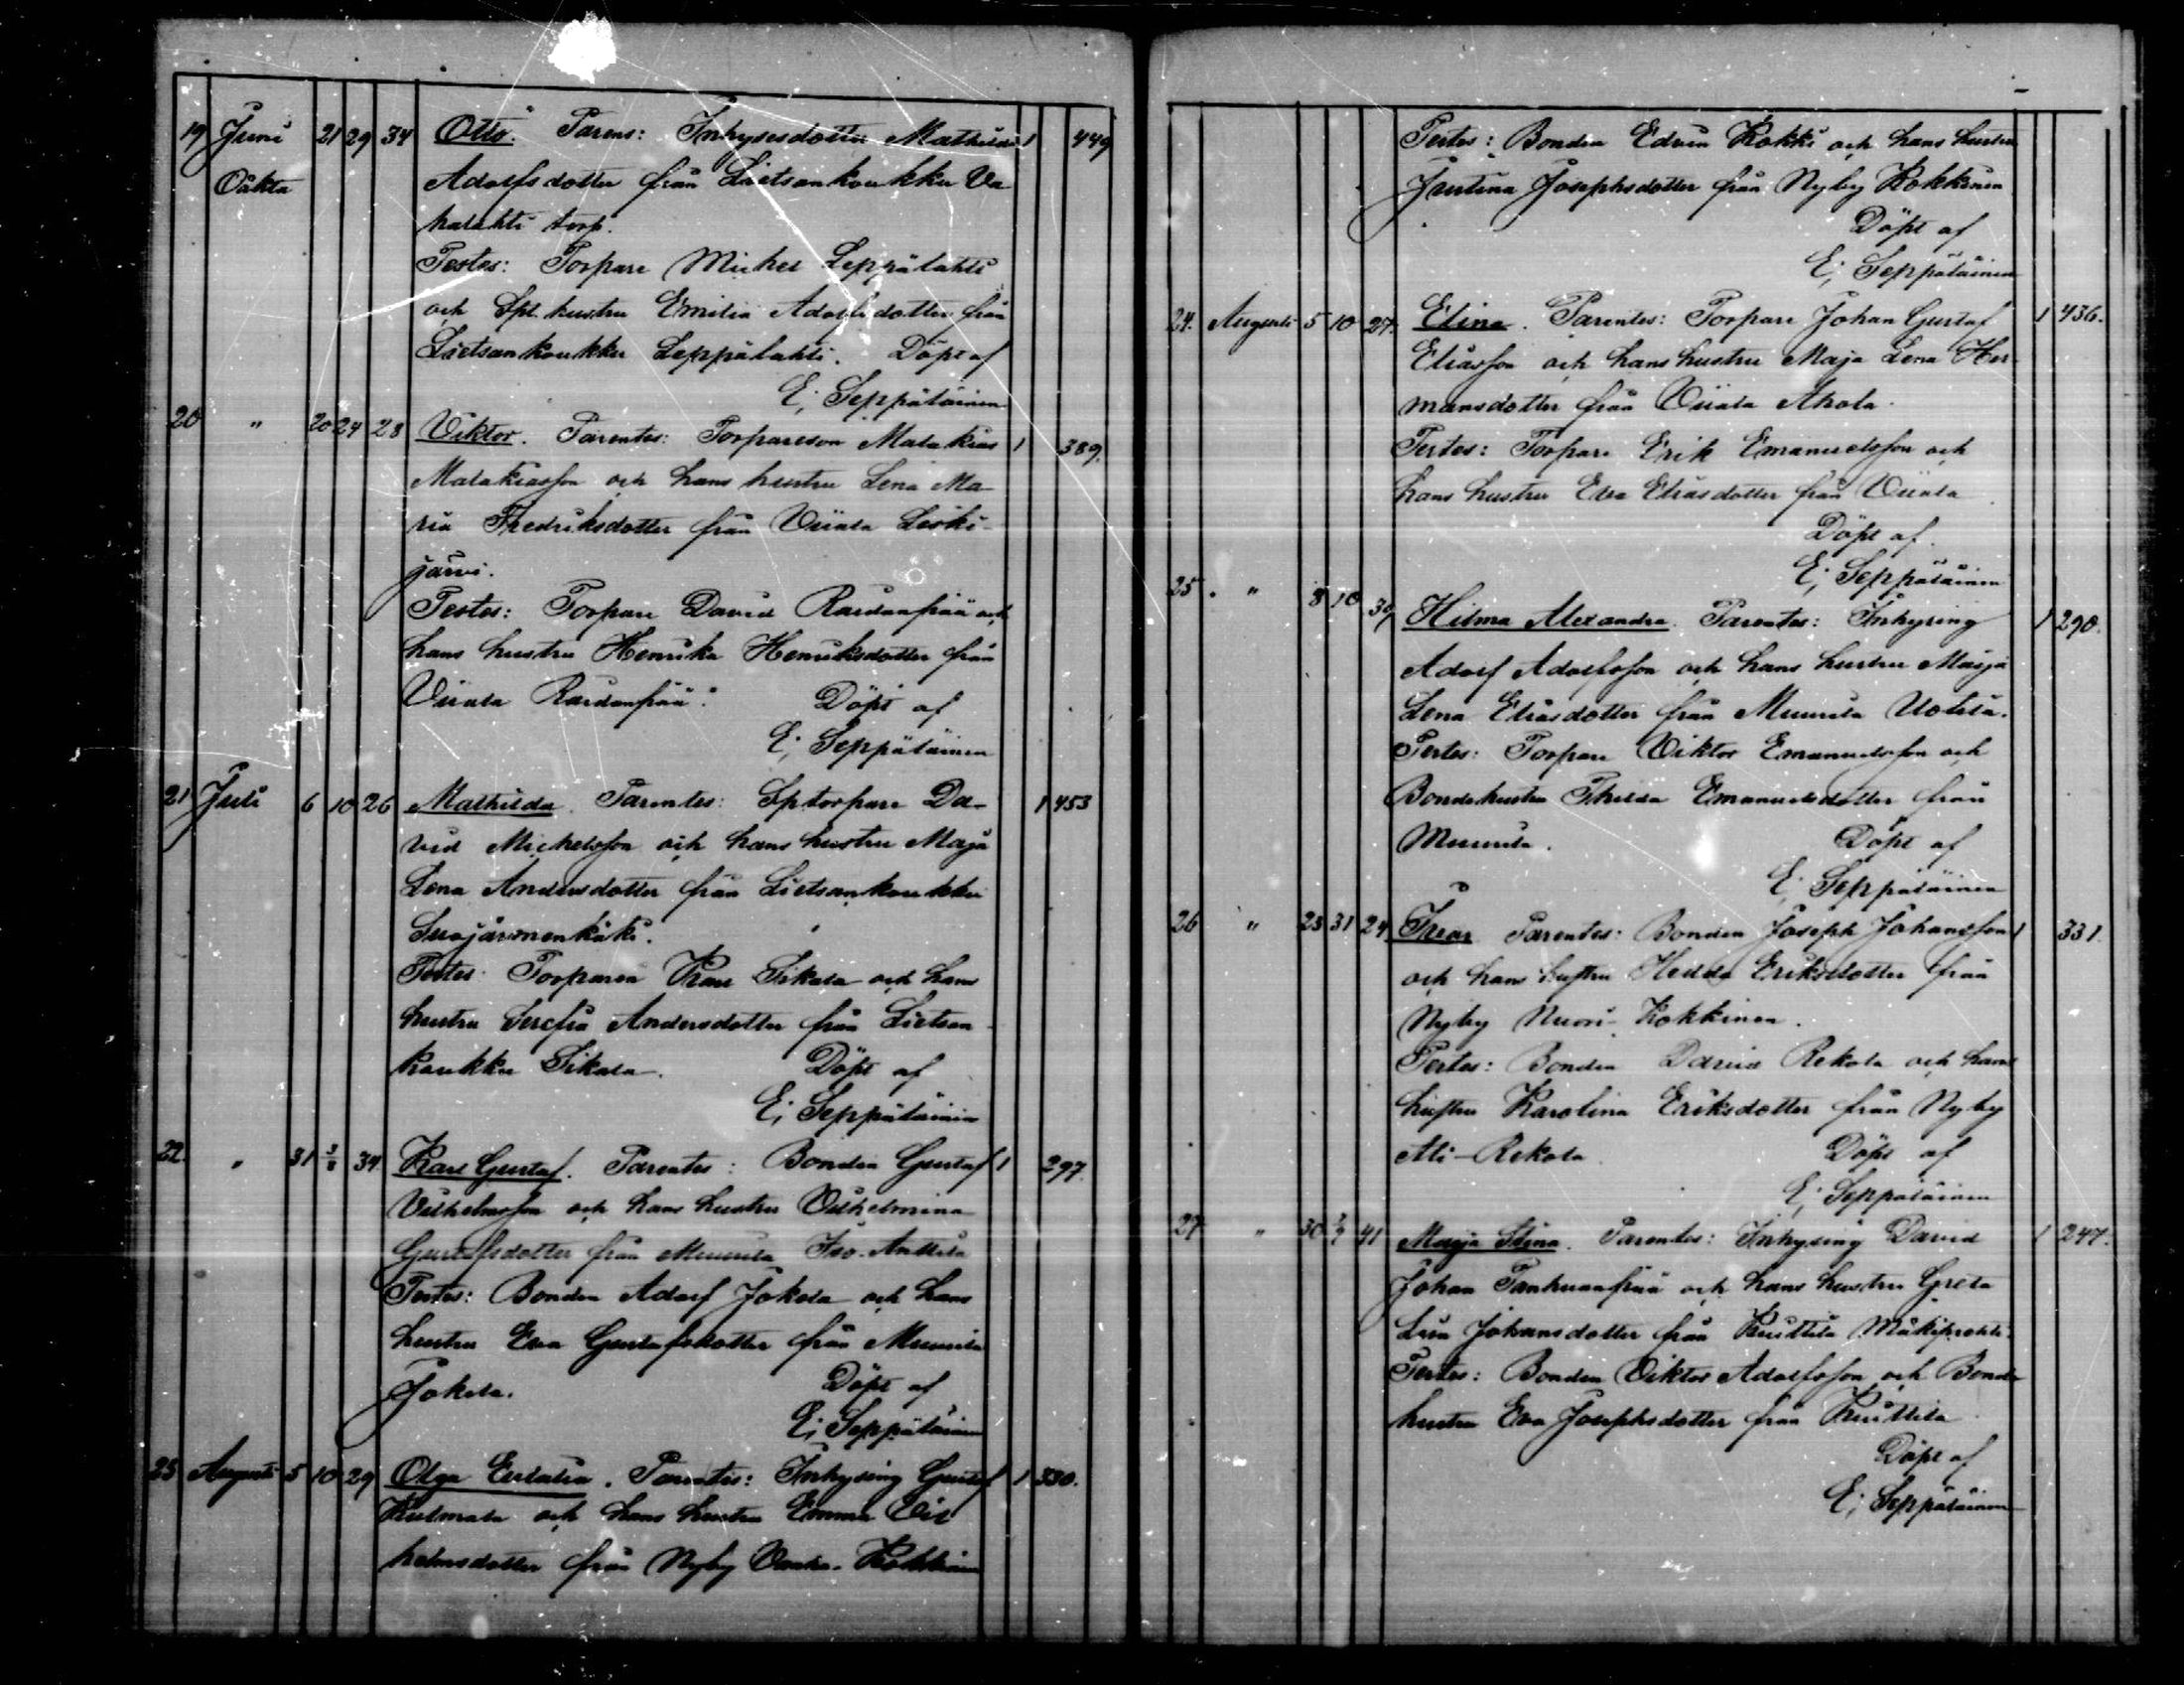 19 Juni 21 29 34 Otto. Parens: Inhysesdotter Mathilda 1 449
Oäkta Adolfsdotter från Lietsankoukku Va-
halahti torp.
Testes: Torpare Michel Leppälahti
och Spt. hustru Emilia Adolfsdotter från
Lietsankoukku Leppälahti. Döpt af
E; Seppäläinen
20 " 20 24 28 Viktor. Parentes: Torpareson Malakias 1 389.
Malakiasson och hans hustru Lena Ma-
ria Fredriksdotter från Viiala Leski-
järvi.
Testes: Torpare David Raudanpää och
hans hustru Henrika Henriksdotter från
Viiala Raudanpää. Döpt af
E; Seppäläinen
21 Juli 6 10 26 Mathilda. Parentes: Sptorpare Da- 1 453
vid Michelsson och hans hustru Maja
Lena Andersdotter från Lietsankoukku
Testes: Torparen Karl Sikala och hans
hustru Serefia Andersdotter från Lietsan
koukku Sikala. Döpt af
E; Seppäläinen
22. " 31 3/8 34 Karl Gustaf. Parentes: Bonden Gustaf 1 297.
Vilhelmsson och hans hustru Vilhelmina
Gustafsdotter från Muurila Iso-Anttila
Testes: Bonden Adolf Jokela och hans
hustru Eva Gustafsdotter från Muurila
Jokela. Döpt af
E; Seppäläinen
23 Augusti 5 10 29 Olga Eulalia. Parentes: Inhysing Gustaf 1 330.
Kulmala och hans hustru Emma Vil
helmsdotter från Nyby Vanha-Kokkinen
Testes: Bonden Edvin Kokki och hans hustru
Justina Josephsdotter från Nyby Kokkinen
Döpt af
E; Seppäläinen
24. Augusti 5 10 27. Elina. Parentes: Torpare Johan Gustaf 1 436.
Eliasson och hans hustru Maja Lena Her-
mansdotter från Viiala Ahola.
Testes: Torpare Erik Emanuelsson och
hans hustru Eva Eliasdotter från Viiala
Döpt af.
E; Seppäläinen
25. " 8 10 30 Hilma Alexandra. Parentes: Inhysing 1 290.
Adolf Adolfsson och hans hustru Maja
Lena Eliasdotter från Muurila Uotila.
Testes: Torpare Viktor Emanuelsson och
Bondehustru Thilda Emanuelsdotter från
Muurila. Döpt af
E; Seppäläinen
26 " 23 31 24 Ivar Parentes: Bonden Joseph Johansson 1 331.
och hans hustru Hedda Eriksdotter från
Nyby Nuori-Kokkinen.
Testes: Bonden David Rekola och hans
hustru Karolina Eriksdotter från Nyby
Ali-Rekola. Döpt af
E; Seppäläinen
27 " 30 7/9 41 Maja Stina. Parentes: Inhysing David 1 247.
Johan Tanhuanpää och hans hustru Greta
Lisa Johansdotter från Kuittila
Testes: Bonden Viktor Adolfsson och Bonde
hustru Eva Josephsdotter från Kuittila
Döpt af
E; Seppäläinen